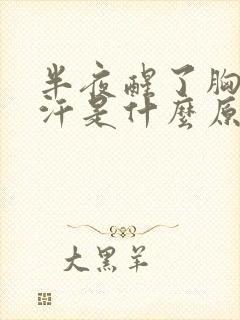 半夜醒了胸
汗是什麼原
大黑羊